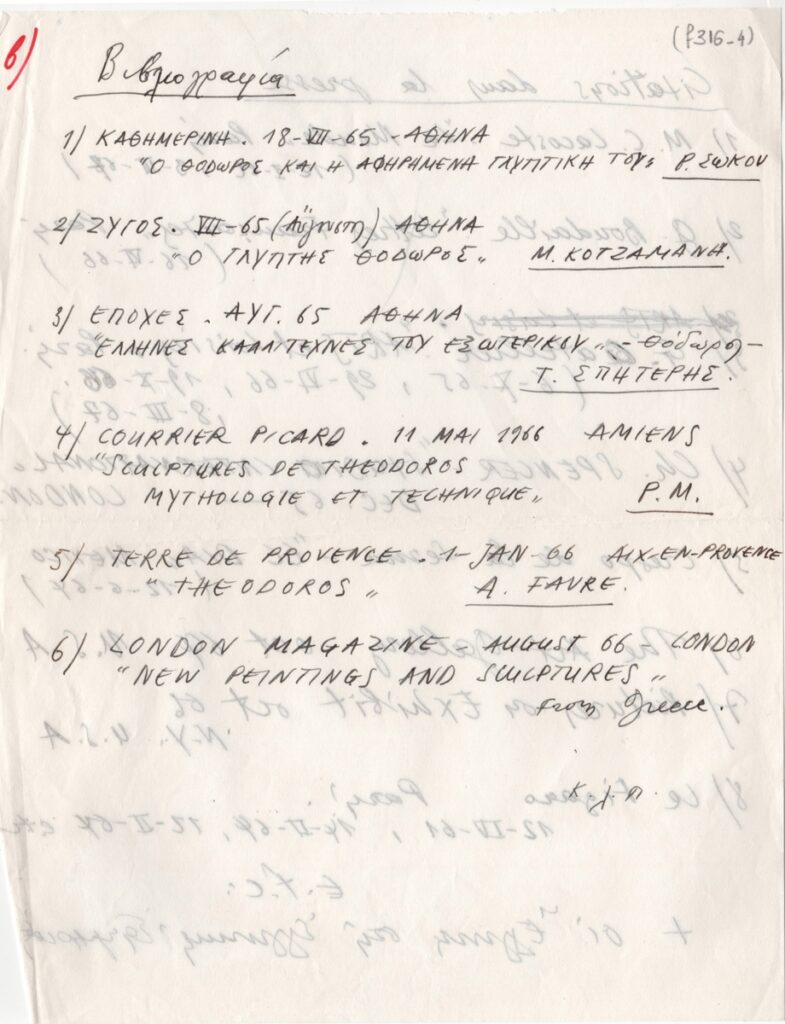 β)
(f316-4)
Βιβλιογραφία
1) ΚΑΘΗΜΕΡΙΝΗ. 18-VII-65 - ΑΘΗΝΑ
"Ο ΘΟΔΩΡΟΣ ΚΑΙ Η ΑΦΗΡΗΜΕΝΑ ΓΛΥΠΤΙΚΗ ΤΟΥ" Ρ. ΣΩΚΟΥ
2) ΖΥΓΟΣ. VIII-65 (Αὔγουστ) ΑΘΗΝΑ
"Ο ΓΛΥΠΤΗΣ ΘΟΔΩΡΟΣ" Μ. ΚΟΤΖΑΜΑΝΗ.
3) ΕΠΟΧΕΣ. ΑΥΓ. 65 ΑΘΗΝΑ
"ΕΛΛΗΝΕΣ ΚΑΛΛΙΤΕΧΝΕΣ ΤΟΥ ΕΞΩΤΕΡΙΚΟΥ" - Θόδωρος -
Τ. ΣΠΗΤΕΡΗΣ.
4) COURRIER PICARD. 11 MAI 1966 AMIENS
"SCULPTURES DE THEODOROS
MYTHOLOGIE ET TECHNIQUE" P.M.
5) TERRE DE PROVENCE. 1-JAN-66 AIX-EN-PROVENCE
"THEODOROS" A. FAVRE.
6) LONDON MAGAZINE - AUGUST 66 LONDON
"NEW PEINTINGS AND SCULPTURES"
from Greece.
κ.λ.π.